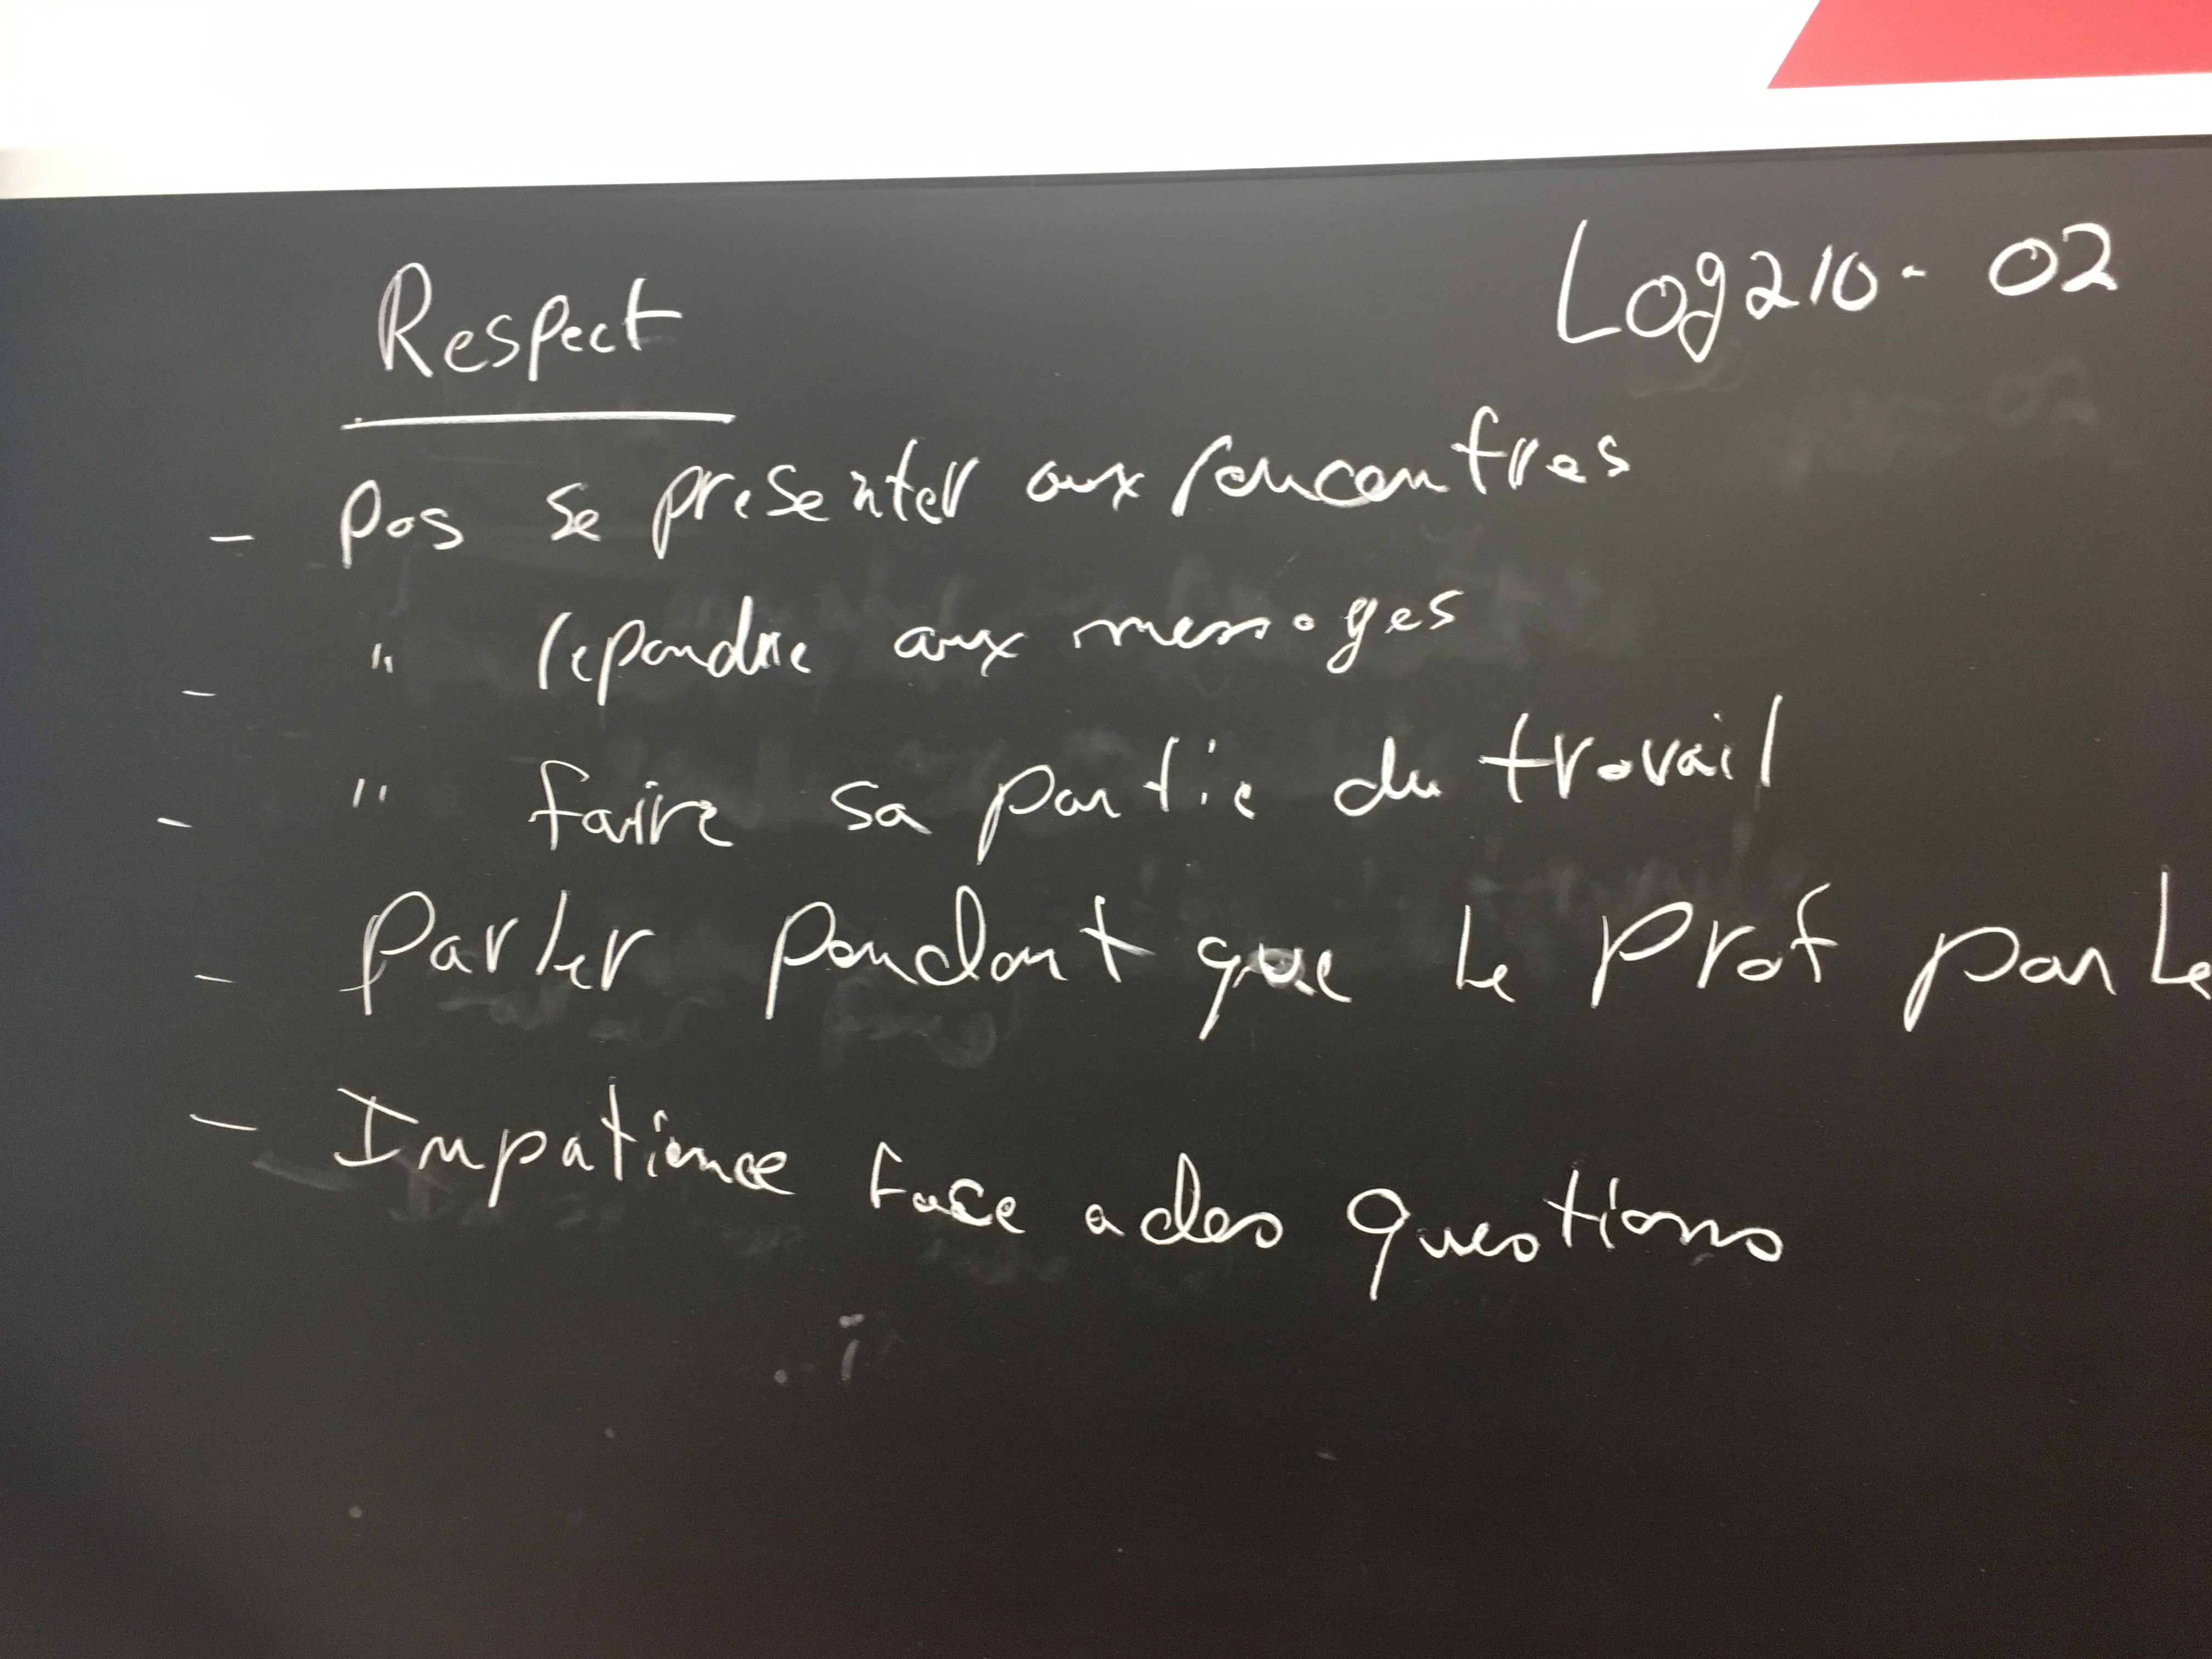 Respect
Log210 - 02
- Pas se presenter aux rencontres
- " repondre aux messages
- " faire sa partie du travail
- Parler pendant que le Prof parle
- Impatience face a des questions